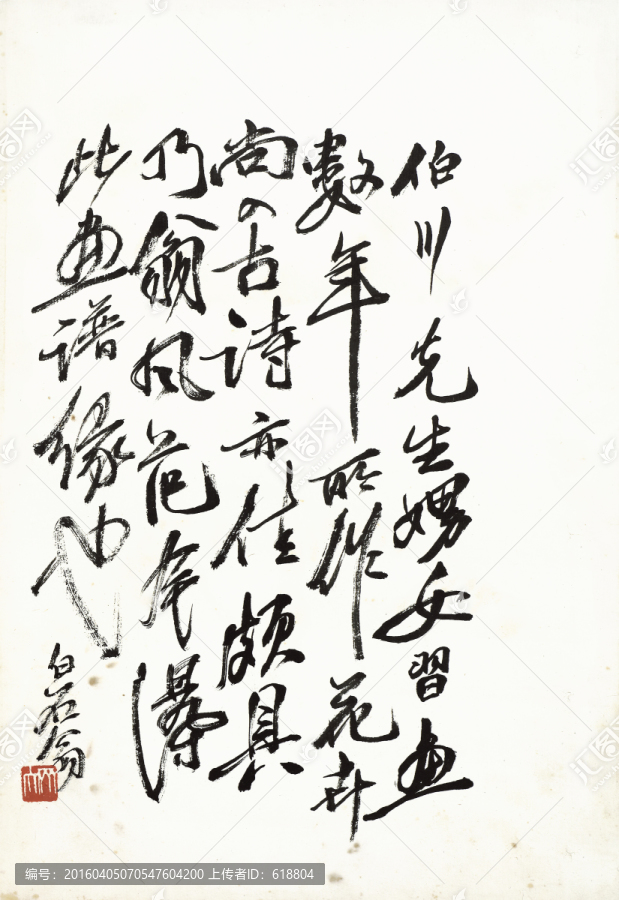 伯川先生女習画
數年所作花卉
尚古詩亦佳頗具
乃翁風范得
此画谱缘也
白石翁
编号：20160405070547604200 上传者ID：618804